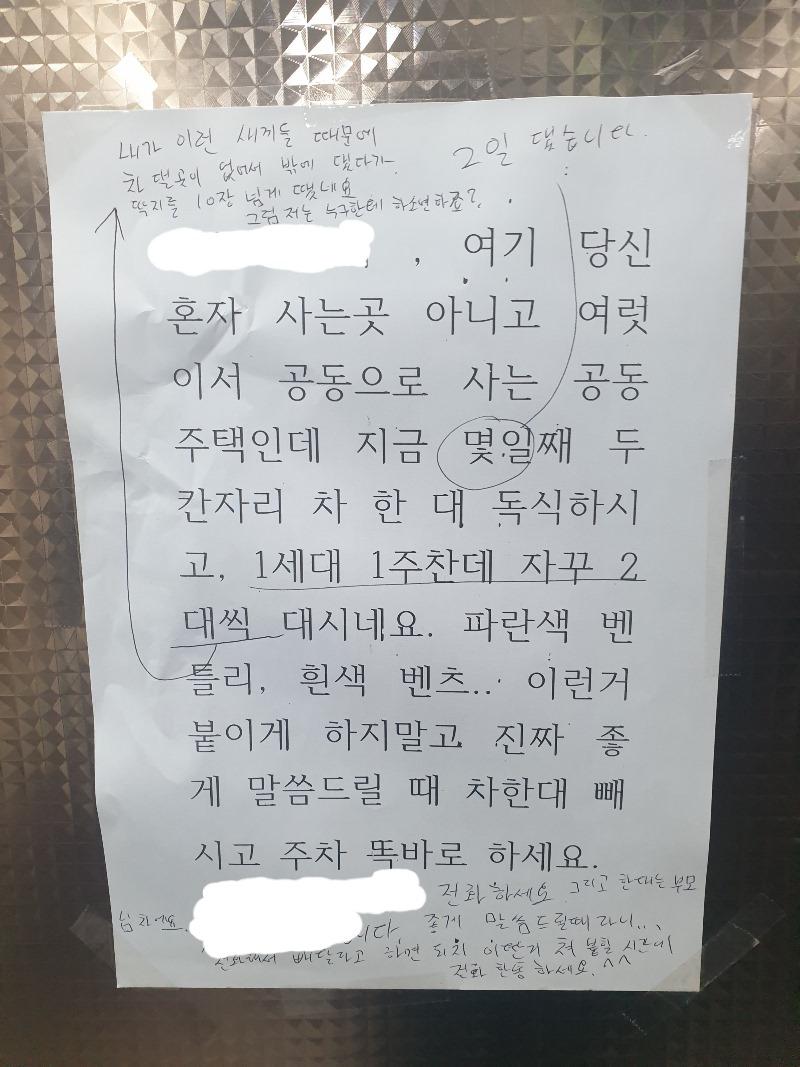 내가 이런 새끼들 때문에
차 댈곳이 없어서 밖에 댔다가
딱지를 10장 넘게 뗐네요
그럼 저는 누구한테 하소연하죠?
2일 댔습니다.
, 여기 당신
혼자 사는곳 아니고 여럿
이서 공동으로 사는 공동
주택인데 지금 몇일째 두
칸자리 차 한 대 독식하시
고, 1세대 1주찬데 자꾸 2
대씩 대시네요. 파란색 벤
틀리, 흰색 벤츠.. 이런거
붙이게 하지말고 진짜 좋
게 말씀드릴 때 차한대 빼
시고 주차 똑바로 하세요.
전화하세요 그리고 한대는 부모
님 차에요. 니다 좋게 말씀드릴때라니...
전화해서 빼달라고 하면 되지 이딴거 쳐 붙힐 시간에
전화 한통 하세요. ^^